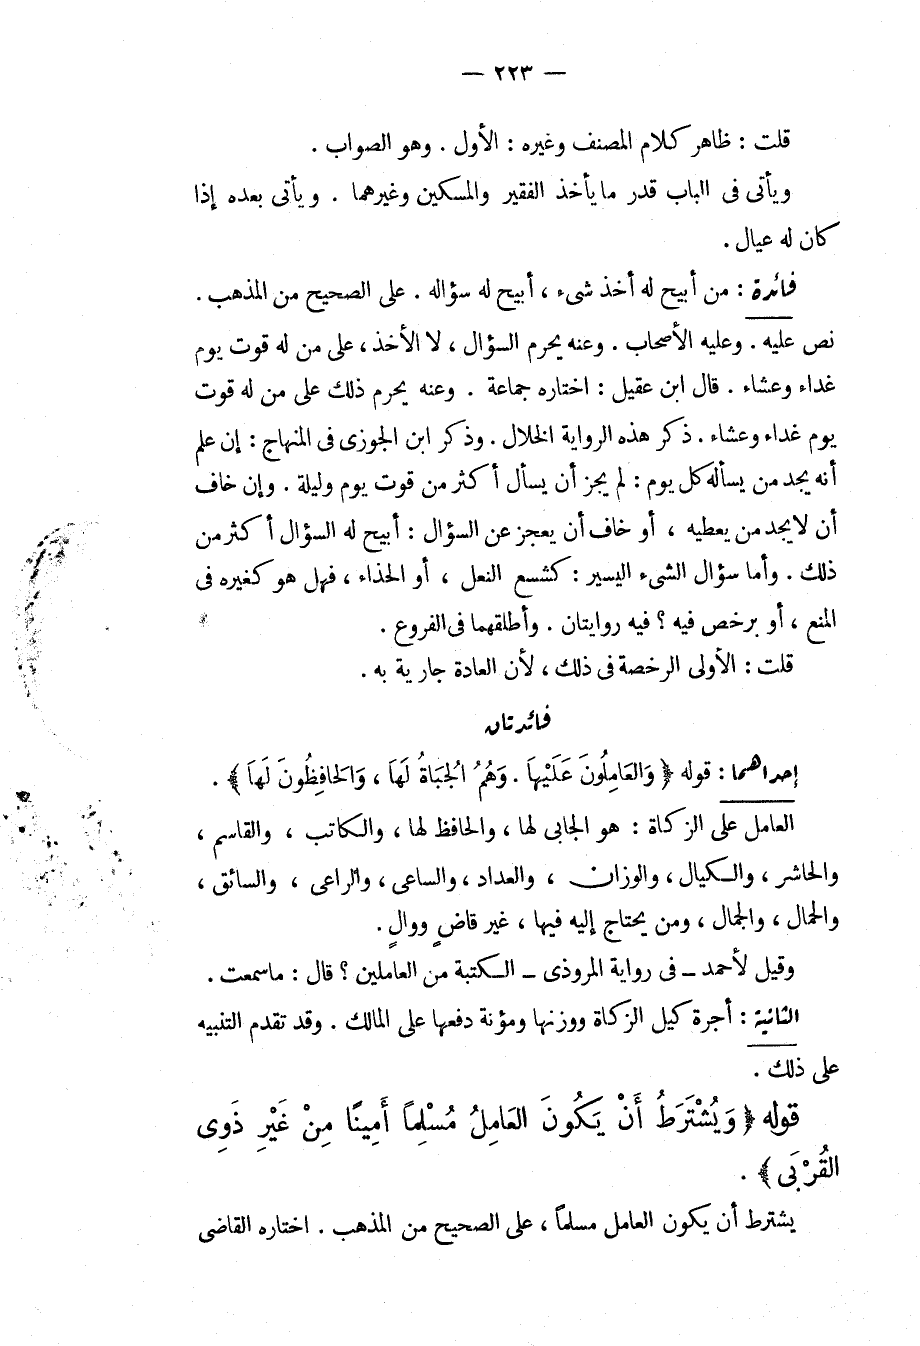 — ٢٢٣ —
قلت : ظاهر كلام المصنف وغيره : الأول . وهو الصواب .
ويأتى فى الباب قدر ما يأخذ الفقير والمسكين وغيرهما . ويأتى بعده إذا
كان له عيال .
فائدة : من أبيح له أخذ شىء ، أبيح له سؤاله . على الصحيح من المذهب .
نص عليه . وعليه الأصحاب . وعنه يحرم السؤال ، لا الأخذ ، على من له قوت يوم
غداء وعشاء . قال ابن عقيل : اختاره جماعة . وعنه يحرم ذلك على من له قوت
يوم غداء وعشاء . ذكر هذه الرواية الخلال . وذكر ابن الجوزى فى المنهاج : إن علم
أنه يجد من يسأله كل يوم : لم يجز أن يسأل أكثر من قوت يوم وليلة . وإن خاف
أن لا يجد من يعطيه ، أو خاف أن يعجز عن السؤال : أبيح له السؤال أكثر من
ذلك . وأما سؤال الشىء اليسير : كشسع النعل ، أو الحذاء ، فهل هو كغيره فى
المنع ، أو يرخص فيه ؟ فيه روايتان . وأطلقهما فى الفروع .
قلت : الأولى الرخصة فى ذلك ، لأن العادة جارية به .
فائدتان
إحداهما : قوله ﴿ وَالعَامِلُونَ عَلَيْهَا . وَهُمُ الْجُبَاةُ لَهَا ، وَالحَافِظُونَ لَهَا ﴾ .
العامل على الزكاة : هو الجابى لها ، والحافظ لها ، والكاتب ، والقاسم ،
والحاشر ، والكيال ، والوزان ، والعداد ، والساعى ، والراعى ، والسائق ،
والحمال ، والجمال ، ومن يحتاج إليه فيها ، غير قاضٍ ووالٍ .
وقيل لأحمد ــ فى رواية المروذى ــ الكتبة من العاملين ؟ قال : ما سمعت .
الثانية : أجرة كيل الزكاة ووزنها ومؤنة دفعها على المالك . وقد تقدم التنبيه
على ذلك .
قوله ﴿ وَيُشْتَرَطُ أَنْ يَكُونَ العَامِلُ مُسْلِماً أَمِينًا مِنْ غَيْرِ ذَوِى
القُرْبَى ﴾ .
يشترط أن يكون العامل مسلماً ، على الصحيح من المذهب . اختاره القاضى